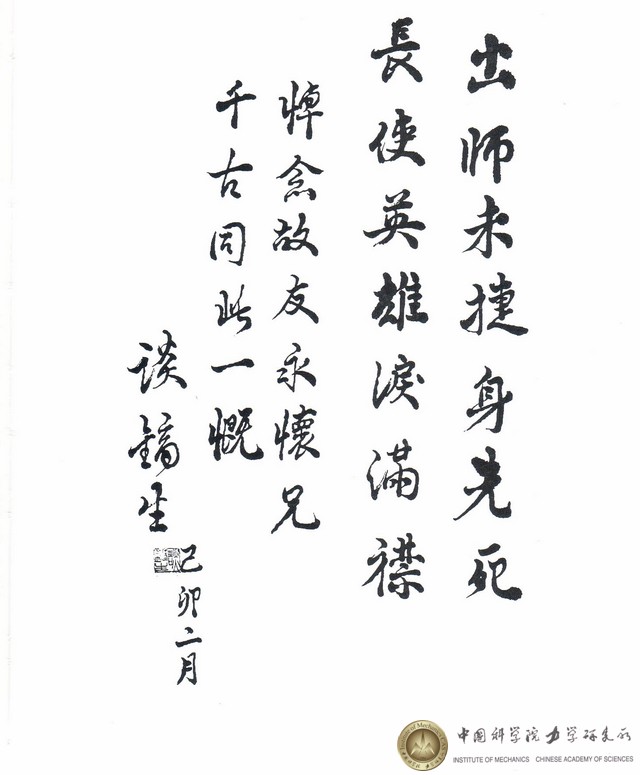 出师未捷身先死
長使英雄淚滿襟
悼念故友永懷兄
千古同此一慨
谈镐生
己卯二月
中国科学院力学研究所
INSTITUTE OF MECHANICS CHINESE ACADEMY OF SCIENCES